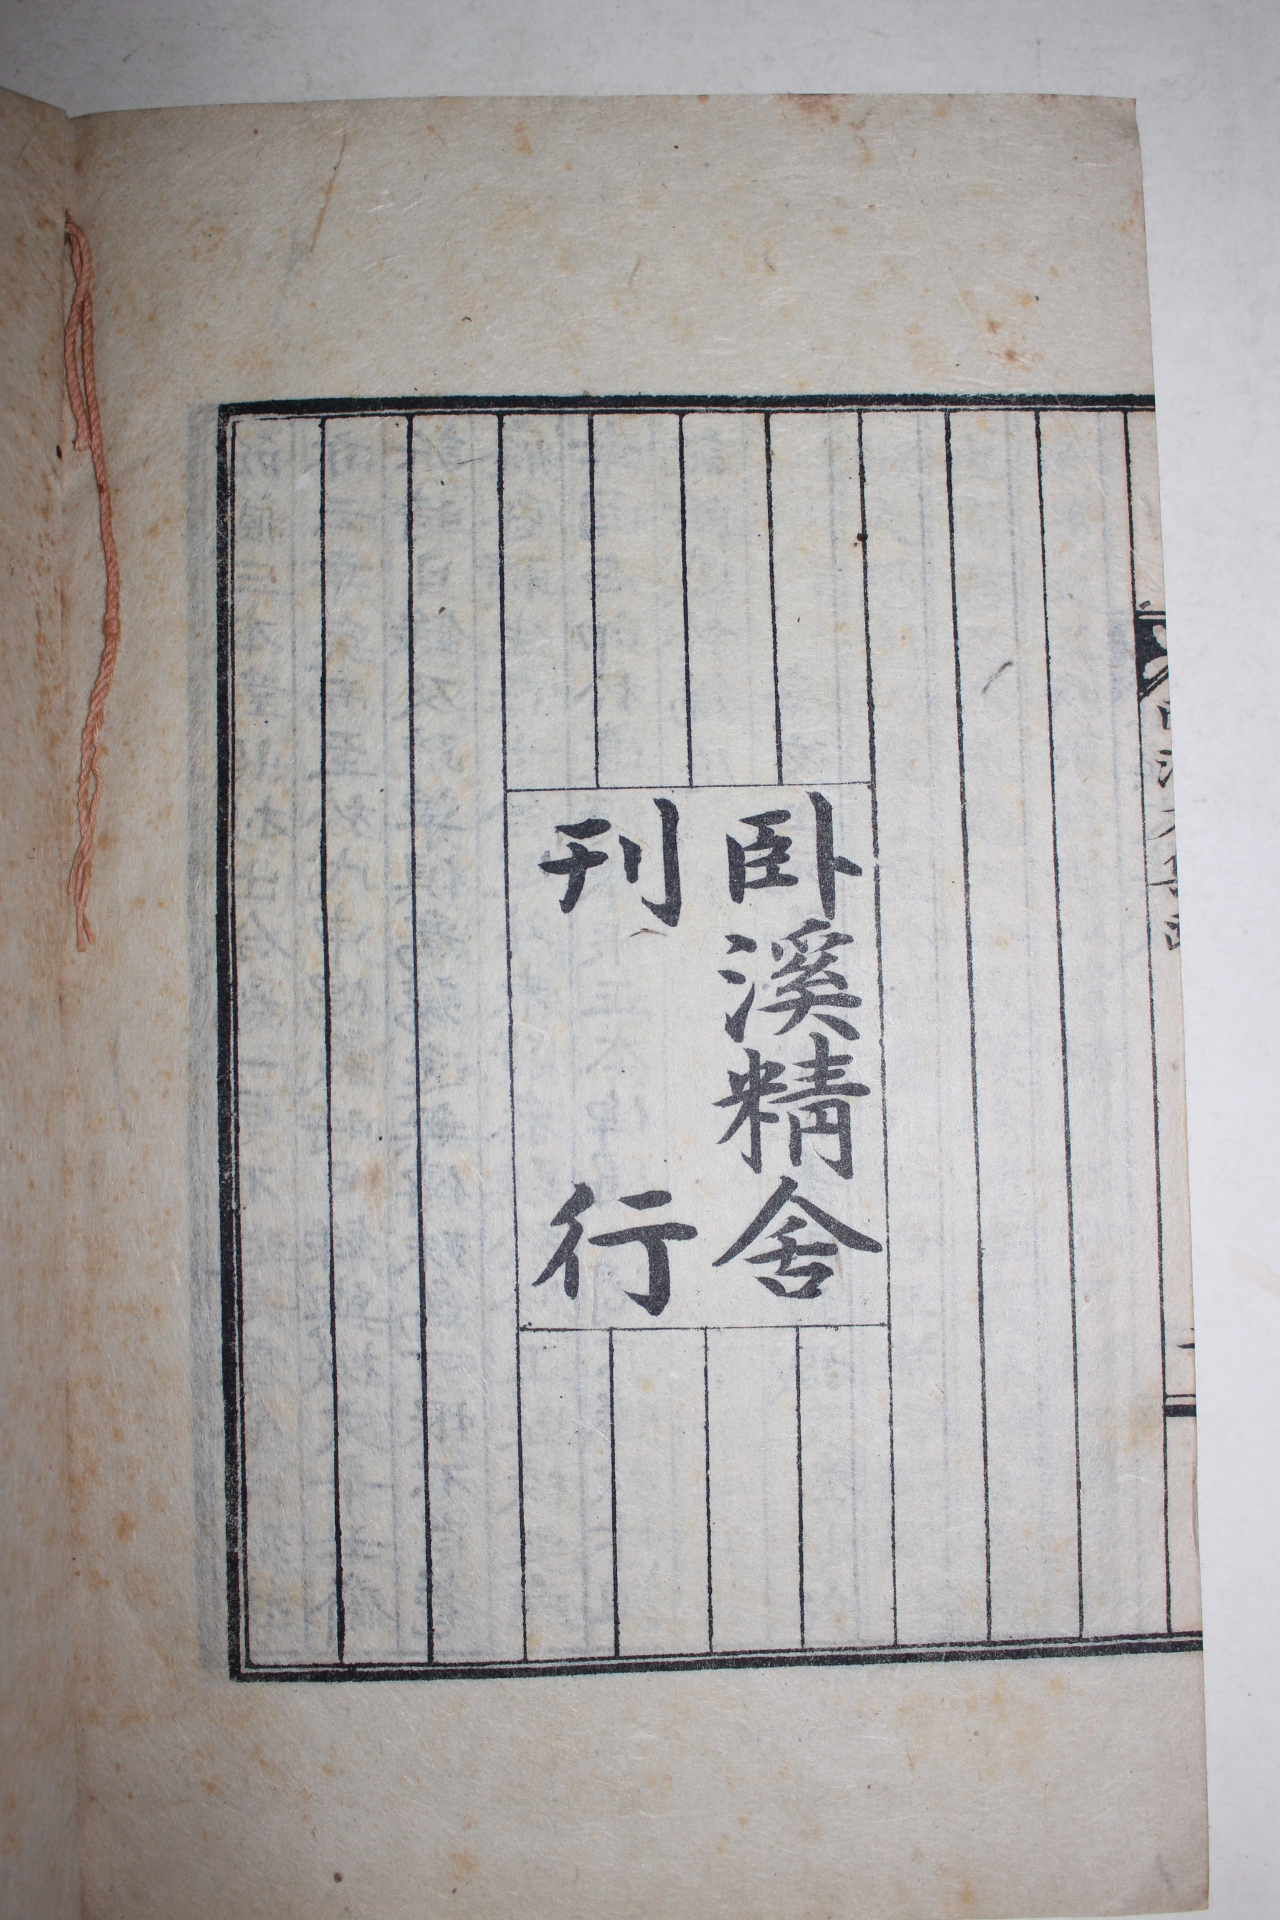 卧溪精舍
刊行